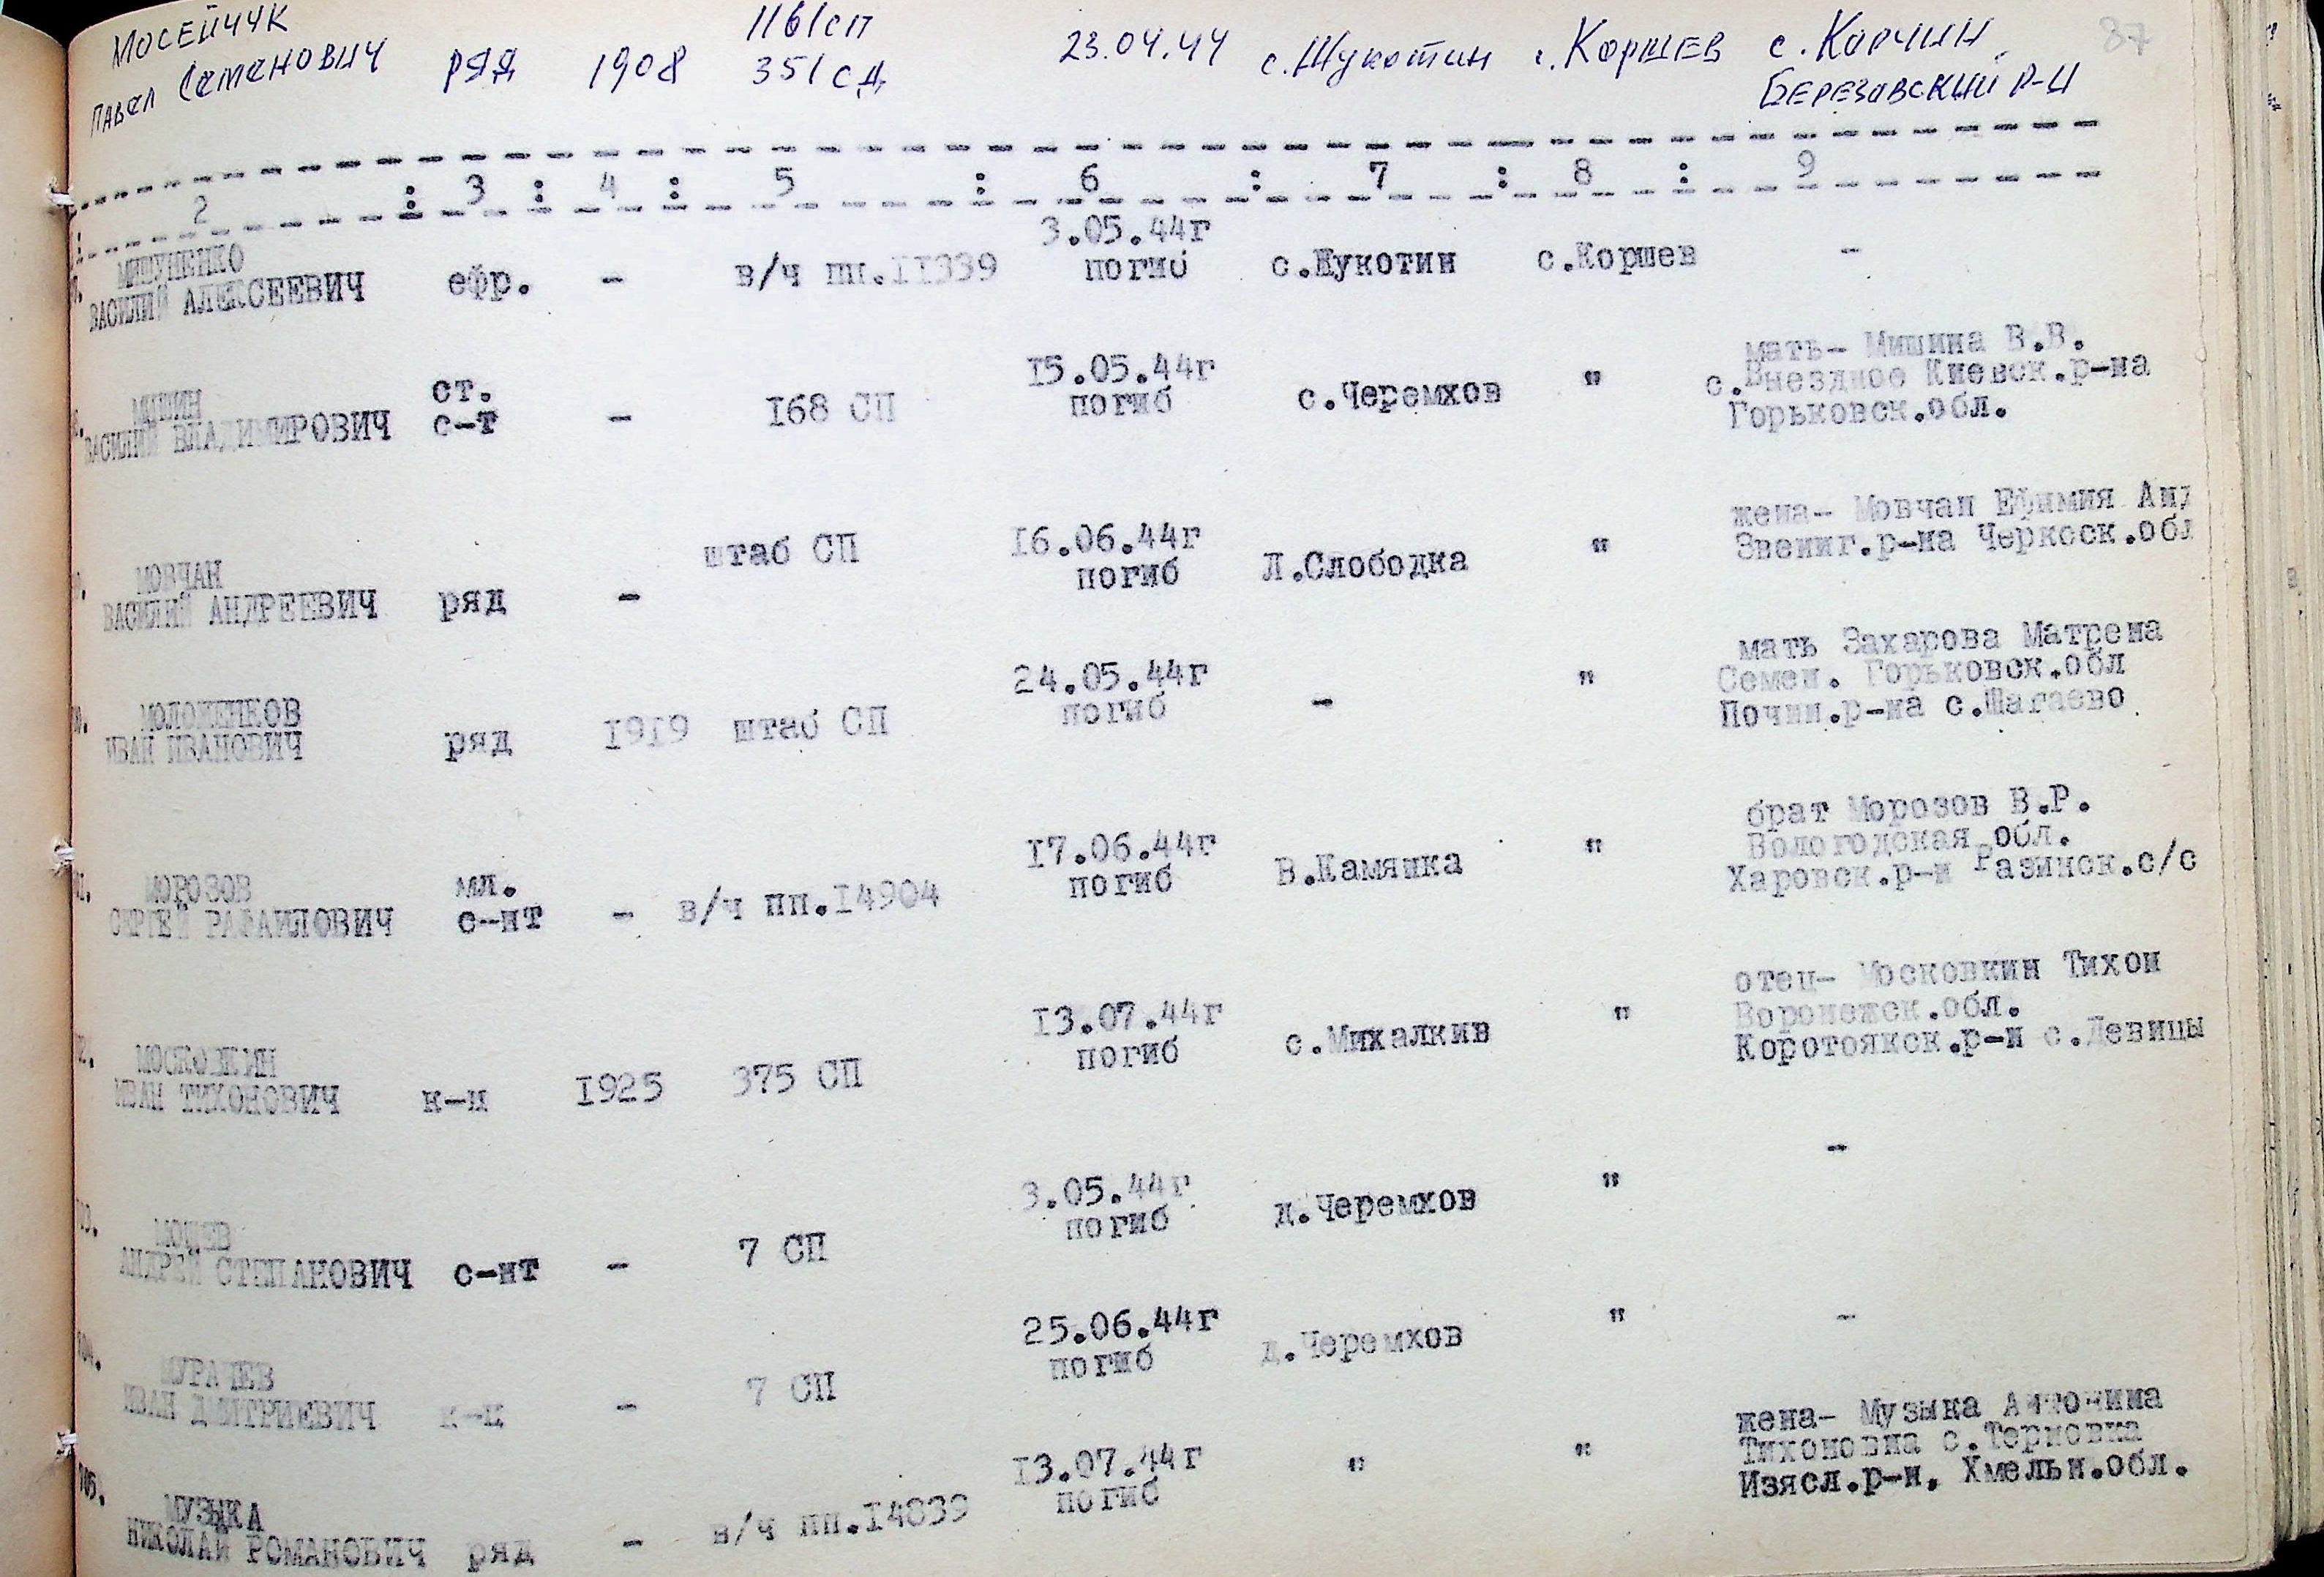 МОСЕЙЧУК
Павел Семенович ряд 1908 1161сп 351 сд 23.04.44 с.Щукотин с.Коршев с.Корчин Березовский р-н
87
2 : 3 : 4 : 5 : 6 : 7 : 8 : 9
МИШУНЕНКО
ВАСИЛИЙ АЛЕКСЕЕВИЧ ефр. - в/ч пп.II339 3.05.44г погиб с.Щукотин с.Коршев -
МИШИН
ВАСИЛИЙ ВЛАДИМИРОВИЧ ст. с-т - I68 СП I5.05.44г погиб с.Черемхов "
мать- Мишина В.В.
с.Внездное Киевск.р-на
Горьковск.обл.
МОВЧАН
ВАСИЛИЙ АНДРЕЕВИЧ ряд - штаб СП I6.06.44г погиб Л.Слободка "
жена- Мовчан Ефимия Анд
Звениг.р-на Черкоск.обл
МОЛОЖЕНКОВ
ИВАН ИВАНОВИЧ ряд I9I9 штаб СП 24.05.44г погиб - "
мать Захарова Матрена
Семен. Горьковск.обл
Почин.р-на с.Шагаево
МОРОЗОВ
СЕРГЕЙ РАФАИЛОВИЧ мл. с-нт - в/ч пп.I4904 I7.06.44г погиб В.Камянка "
брат Морозов В.Р.
Вологодская обл.
Харовск.р-н Разинск.с/с
МОСКОВКИН
ИВАН ТИХОНОВИЧ к-ц I925 375 СП I3.07.44г погиб с.Михалкив "
отец- Московкин Тихон
Воронежск.обл.
Коротоякск.р-н с.Девицы
АНДРЕЙ СТЕПАНОВИЧ с-нт - 7 СП 3.05.44г погиб д.Черемхов " -
МУРАЧЕВ
ИВАН ДМИТРИЕВИЧ к-ц - 7 СП 25.06.44г погиб д.Черемхов " -
705.
МУЗЫКА
НИКОЛАЙ РОМАНОВИЧ ряд - в/ч пп.I4839 I3.07.44г погиб " "
жена- Музыка Антонина
Тихоновна с.Терновка
Изясл.р-н, Хмельн.обл.